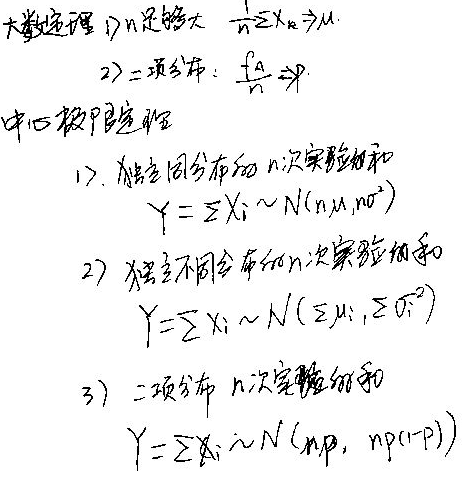 大数定理 1) n足够大 1/n ΣXk ⇒ μ.
2) 二项分布: fA/n ⇒ p.
中心极限定理
1). 独立同分布的 n次实验的和
Y = ΣXi ~ N(nμ, nσ²)
2) 独立不同分布的n次实验的和
Y = ΣXi ~ N(Σμi, Σσi²)
3) 二项分布 n次实验的和
Y = ΣXi ~ N(np, np(1-p))